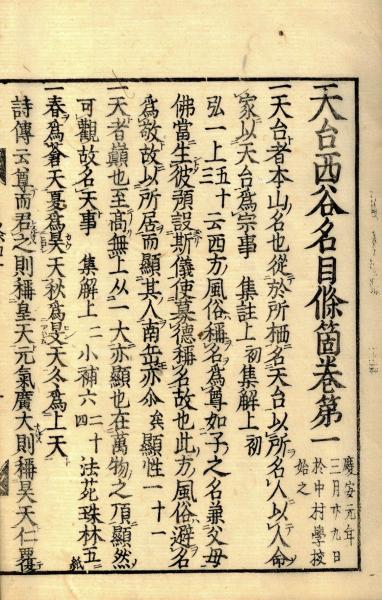 天台西谷名目條箇卷第一
慶安元年
三月廿九日
於中村學校
始之
一天台者本山名也從於所栖名天台以所名人以人命
家以天台爲宗事 集註上初集解上初
弘一上三五十云西方風俗稱名爲尊如子之名兼父母
佛當生彼預設斯儀使慕德稱名故也此方風俗避名
爲敬故以所居而顯其人南岳亦尒矣顯性一十一
一天者巓也至高無上从一大亦顯也在萬物之頂顯然
可觀故名天事 集解上二小補六四二十法苑珠林五
一春爲蒼天夏爲昊天秋爲旻天冬爲上天
詩傳云尊而君之則稱皇天元氣廣大則稱昊天仁覆